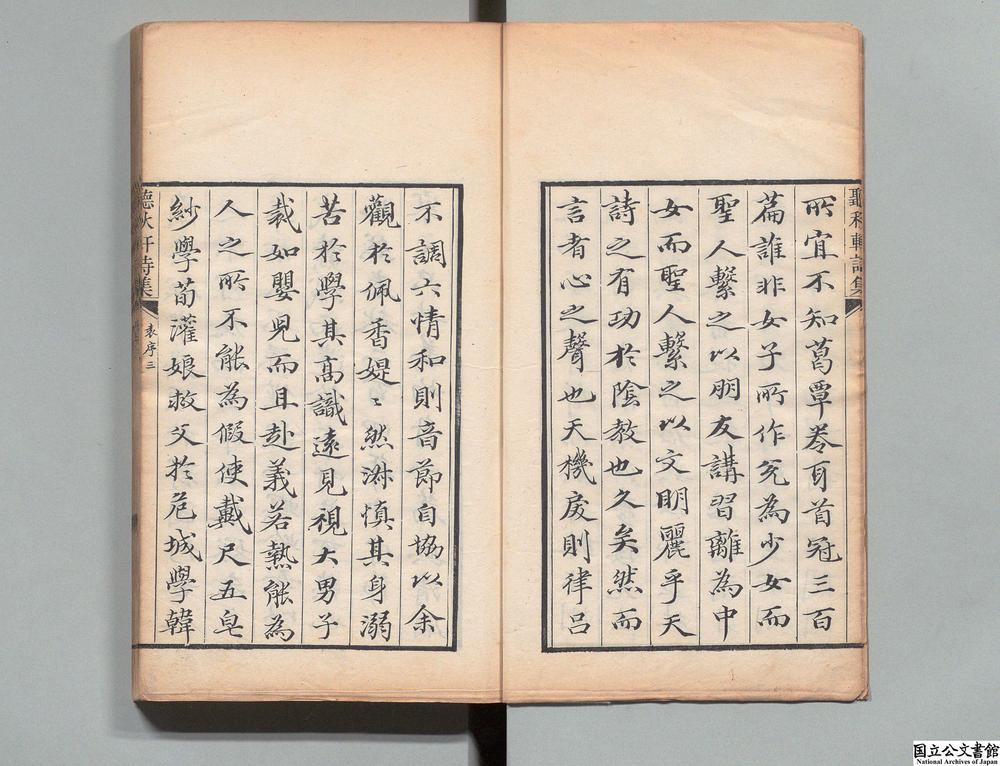 聽秋軒詩集
所宜不知葛覃卷耳首冠三百
篇誰非女子所作兌為少女而
聖人繫之以朋友講習離為中
女而聖人繫之以文明麗乎天
詩之有功於陰教也久矣然而
言者心之聲也天機戾則律呂
不調六情和則音節自協以余
觀於佩香媞〻然淋慎其身溺
苦於學其高識遠見視大男子
裁如嬰兒而且赴義若熱能為
人之所不能為假使戴尺五皂
紗學荀灌娘救父於危城學韓
聽秋軒詩集
袁序 三
国立公文書館
National Archives of Japan